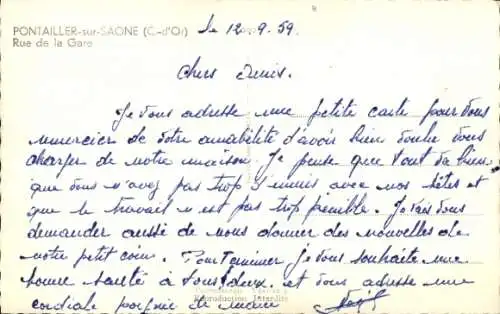 PONTAILLER-sur-SAONE (C.-d'Or)
Rue de la Gare
Le 12.9.59
Chers Amis.
Je vous adresse une petite carte pour vous
remercier de votre amabilité d'avoir bien voulu vous
charger de notre maison. Je pense que tout va bien
que vous n'avez pas trop d'ennuis avec nos bêtes et
que le travail n'est pas trop pénible. Je vais vous
demander aussi de nous donner des nouvelles de
notre petit coin. Pour terminer je vous souhaite une
bonne santé à tous deux. et vous adresse une
cordiale poignée de main
Reproduction Interdite